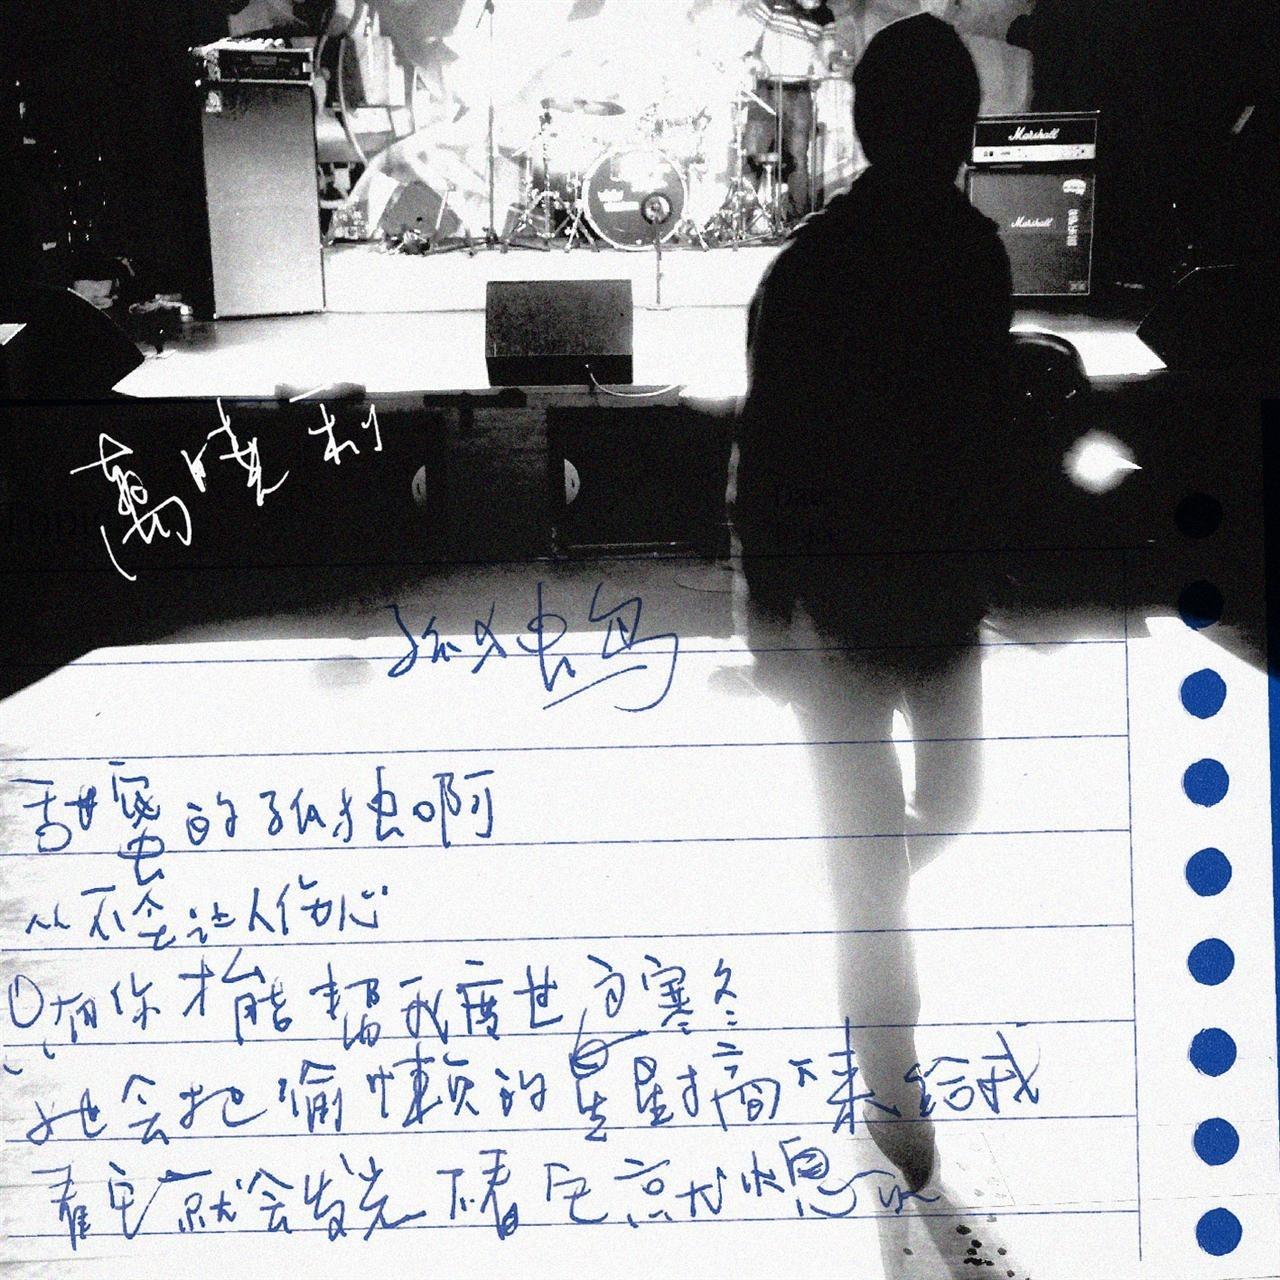 Marshall
Marshall
萬晓利
孤独鸟
甜蜜的孤独啊
从不会让人伤心
只有你才能帮我度过寒冬
她会把偷懒的星星摘下来给我
看它就会发光 不看它就熄灭